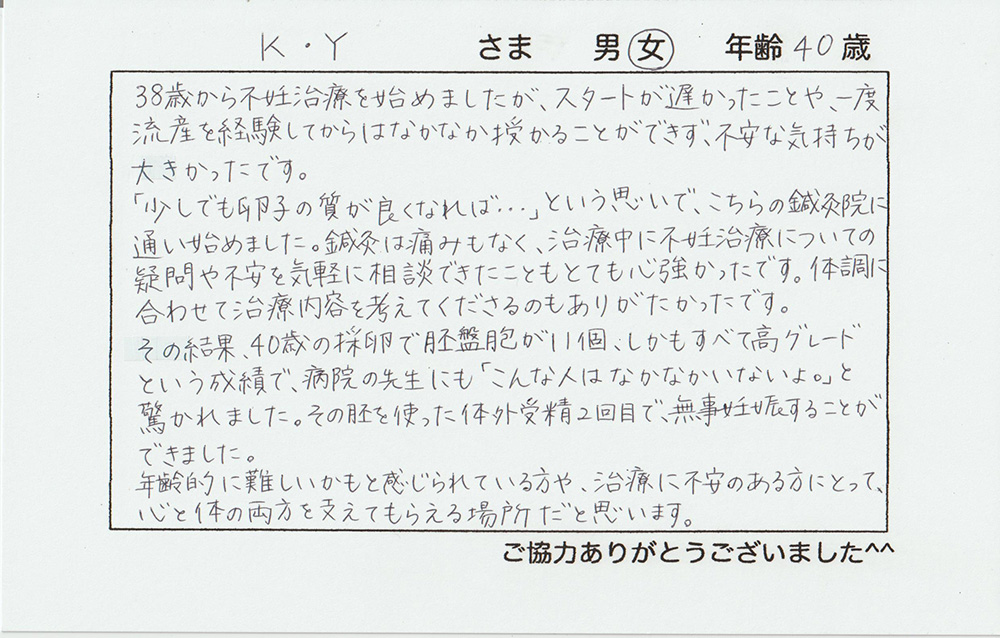 K・Y さま 男 女 年齢 40 歳
38歳から不妊治療を始めましたが、スタートが遅かったことや、一度
流産を経験してからはなかなか授かることができず、不安な気持ちが
大きかったです。
「少しでも卵子の質が良くなれば…」という思いで、こちらの鍼灸院に
通い始めました。鍼灸は痛みもなく、治療中に不妊治療についての
疑問や不安を気軽に相談できたこともとても心強かったです。体調に
合わせて治療内容を考えてくださるのもありがたかったです。
その結果、40歳の採卵で胚盤胞が11個、しかもすべて高グレード
という成績で、病院の先生にも「こんな人はなかなかいないよ。」と
驚かれました。その胚を使った体外受精2回目で、無事妊娠することが
できました。
年齢的に難しいかもと感じられている方や、治療に不安のある方にとって、
心と体の両方を支えてもらえる場所だと思います。
ご協力ありがとうございました^^